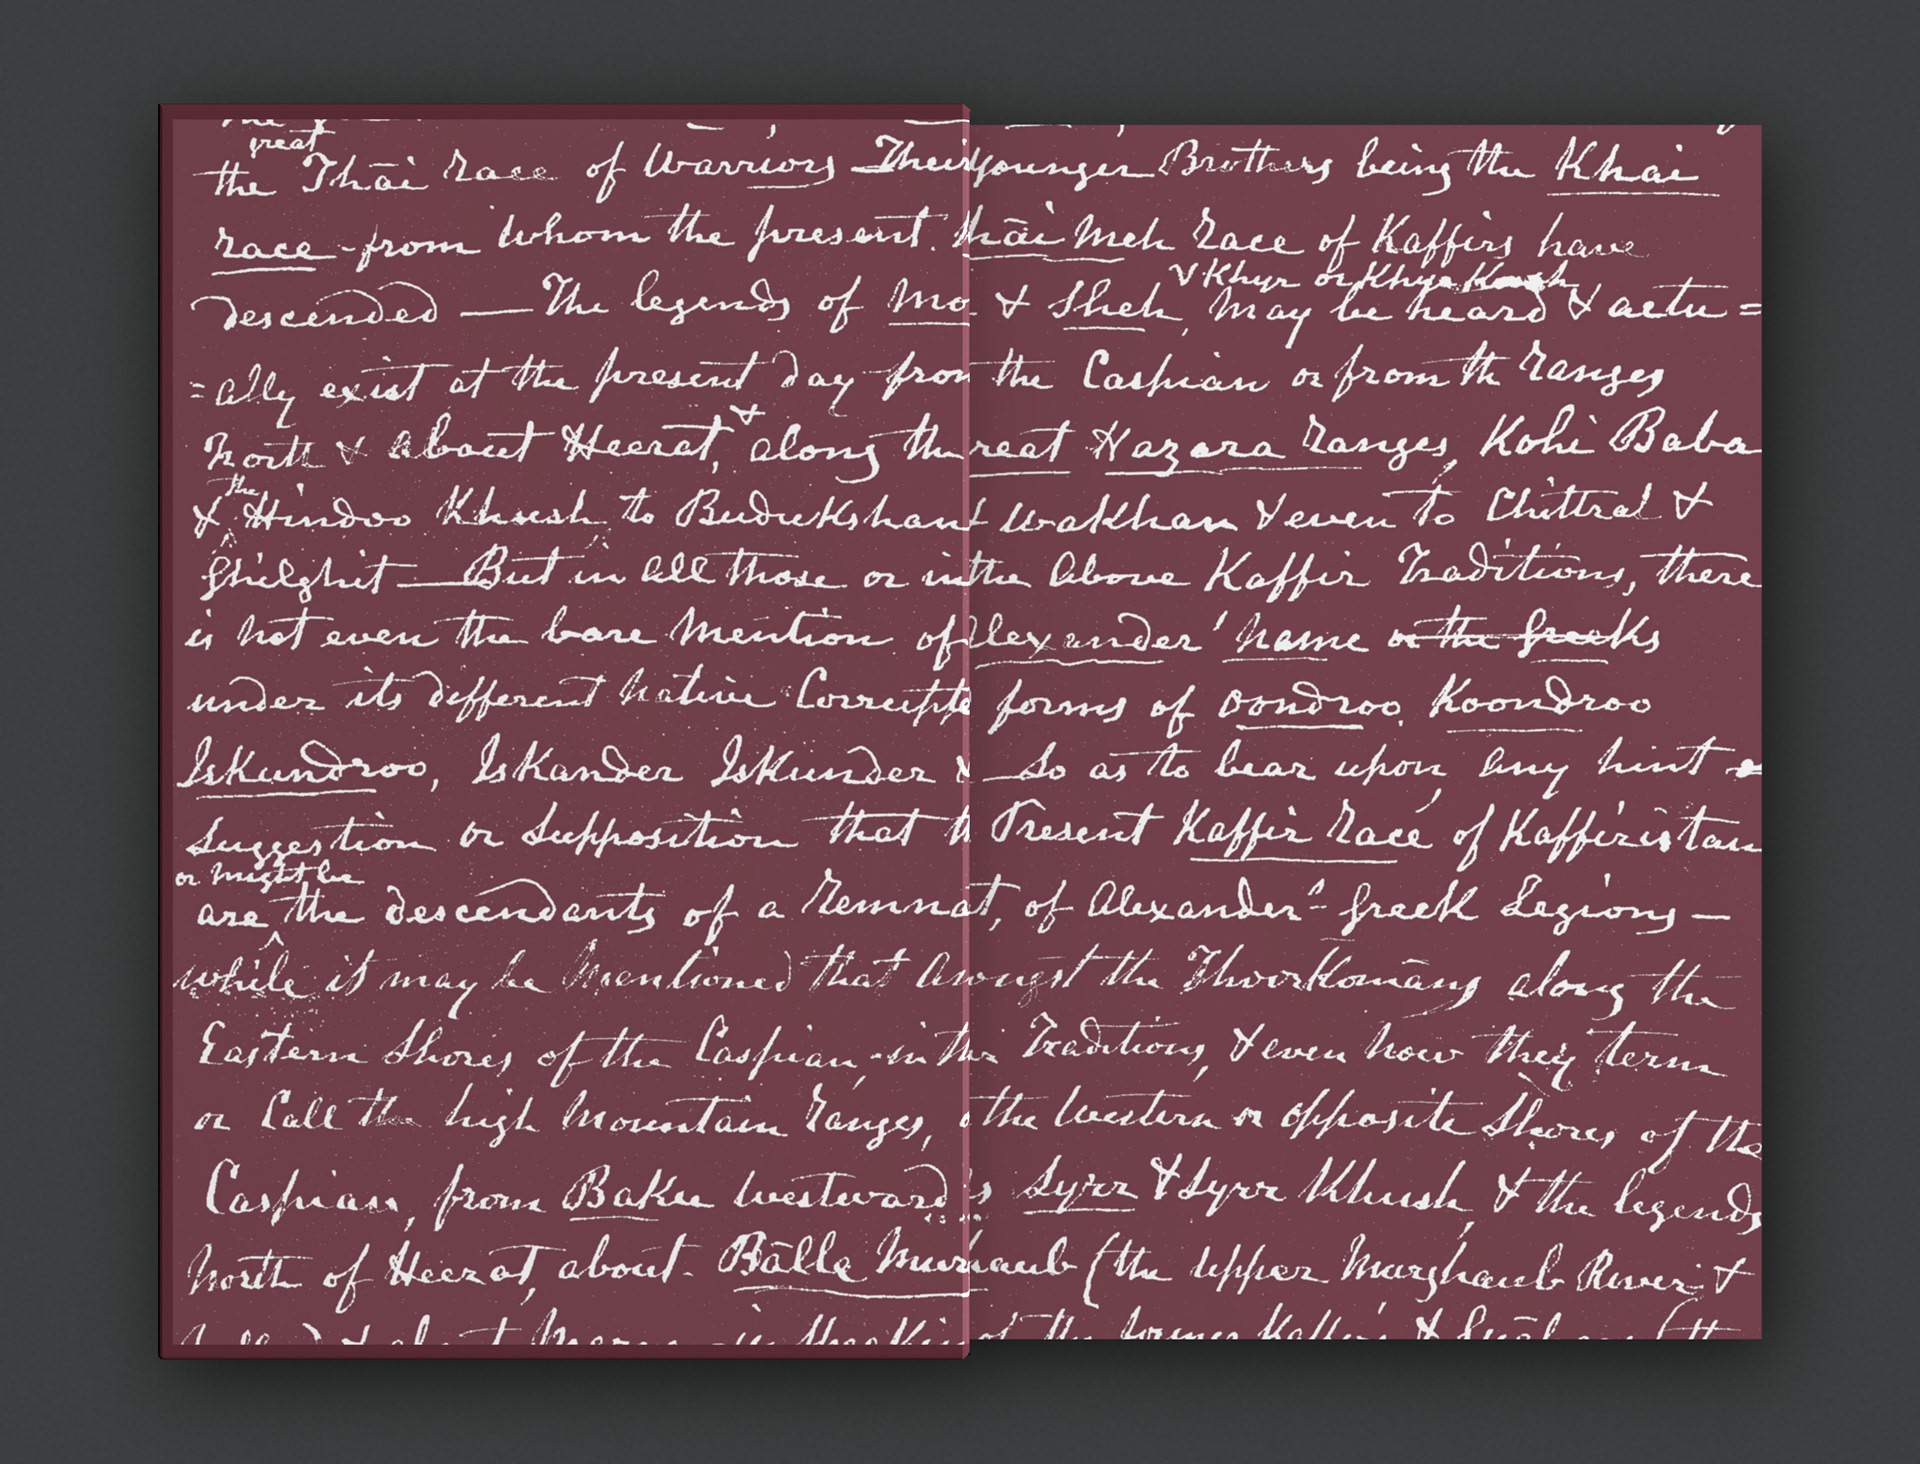 great
the Thāi race of Warriors Their younger Brothers being the Khai
race - from whom the present Khāi Meh race of Kaffirs have
Khyr or Khye Kush
descended — The legends of Mo & Sheh, may be heard & actu =
= ally exist at the present day from the Caspian or from th ranges
&
North & about Heerat, along the reat Hazara ranges, Kohi Baba
the
& Hindoo Khush to Buduckshan Wakhan & even to Chittral &
Ghilghit — But in all those or in the above Kaffir Traditions, there
is not even the bare mention of Alexander' name or the Greeks
under its different native Corrupte forms of Oondroo Koondroo
Iskundroo, Iskander Iskunder & — So as to bear upon, any hint
Suggestion or Supposition that th Present Kaffir race of Kaffiristan
or might be
are the descendants of a remnat, of Alexander's Greek Legions —
while it may be mentioned that amongst the Thoorkomāns along the
Eastern Shores of the Caspian, - in thir Traditions, & even now they term
or Call the high mountain ranges, o the Western or opposite Shores of the
Caspian, from Baku westward is Syrr & Syrr Khush, & the legends
North of Heerat, about - Bālla Murhaub (the upper Murghaub River &